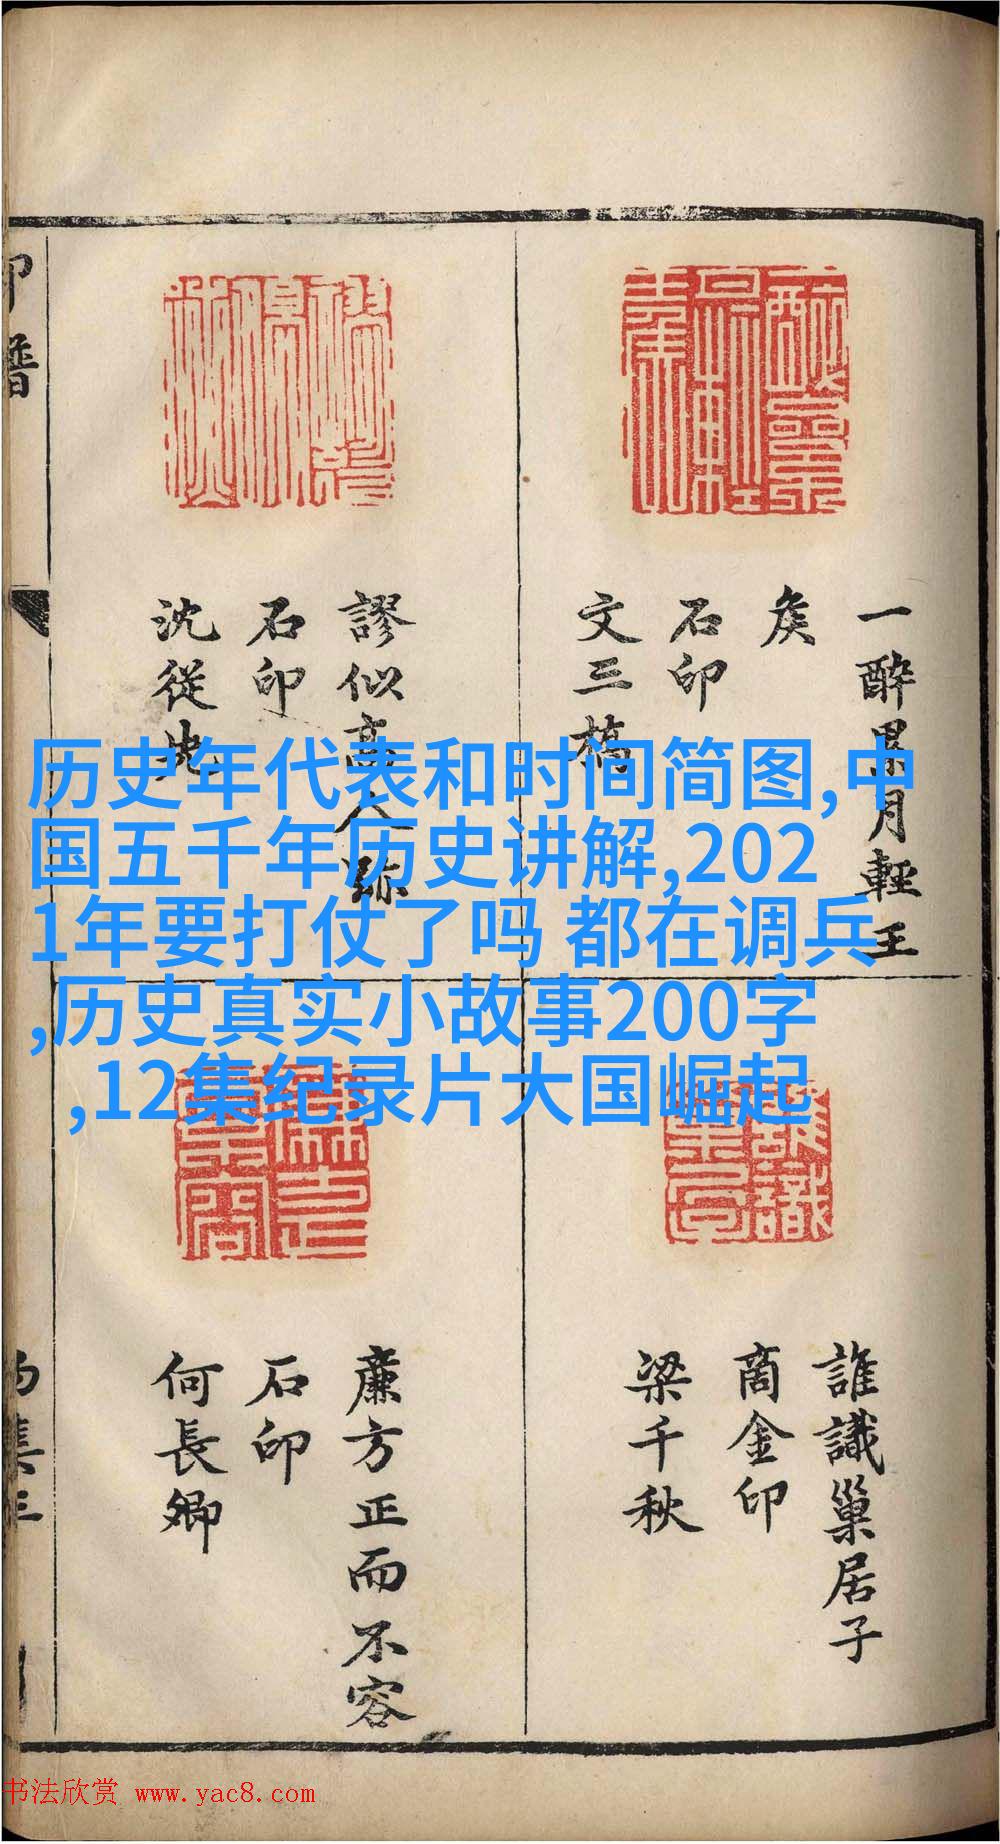 历史年代表和时间简图,中
国五千年历史讲解,202
1年要打仗了吗 都在调兵
,历史真实小故事200字
,12集纪录片大国崛起
一醉累月轻王
矦
石印
文三橋
謬似高人跡
石印
沈從先
誰識巢居子
商金印
梁千秋
廉方正而不容
石印
何長卿
印譜
书法欣赏 www.yac8.com